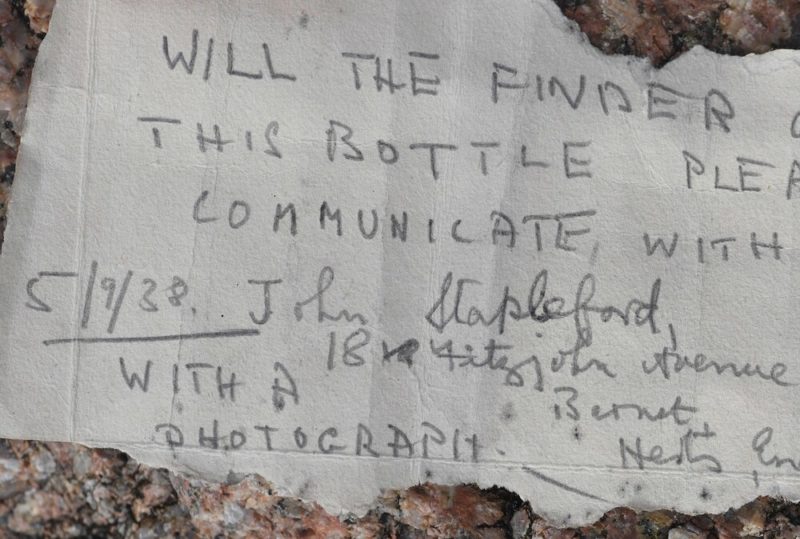 WILL THE FINDER
THIS BOTTLE PLEA
COMMUNICATE, WITH
5/9/38. John Stapleford,
18 Fitzjohn Avenue
WITH A
Barnet,
PHOTOGRAPH. Herts En